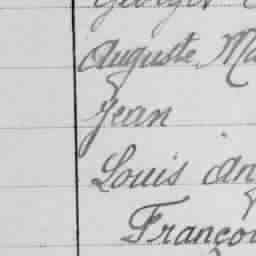 Georges
Auguste, Ma
Jean
Louis An
Franço